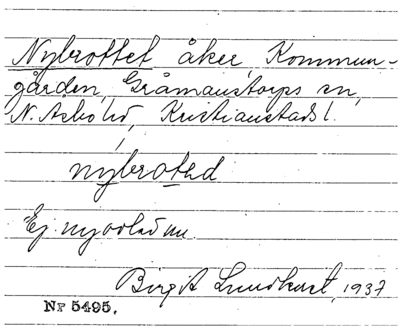 Nybrottet åker, Kommun-
gården, Gråmanstorps sn,
N. Åsbo hd, Kristianstads l.
nybrotəd
Ej nyodlad nu
Birgit Lundkvist, 1937
Nr 5495.